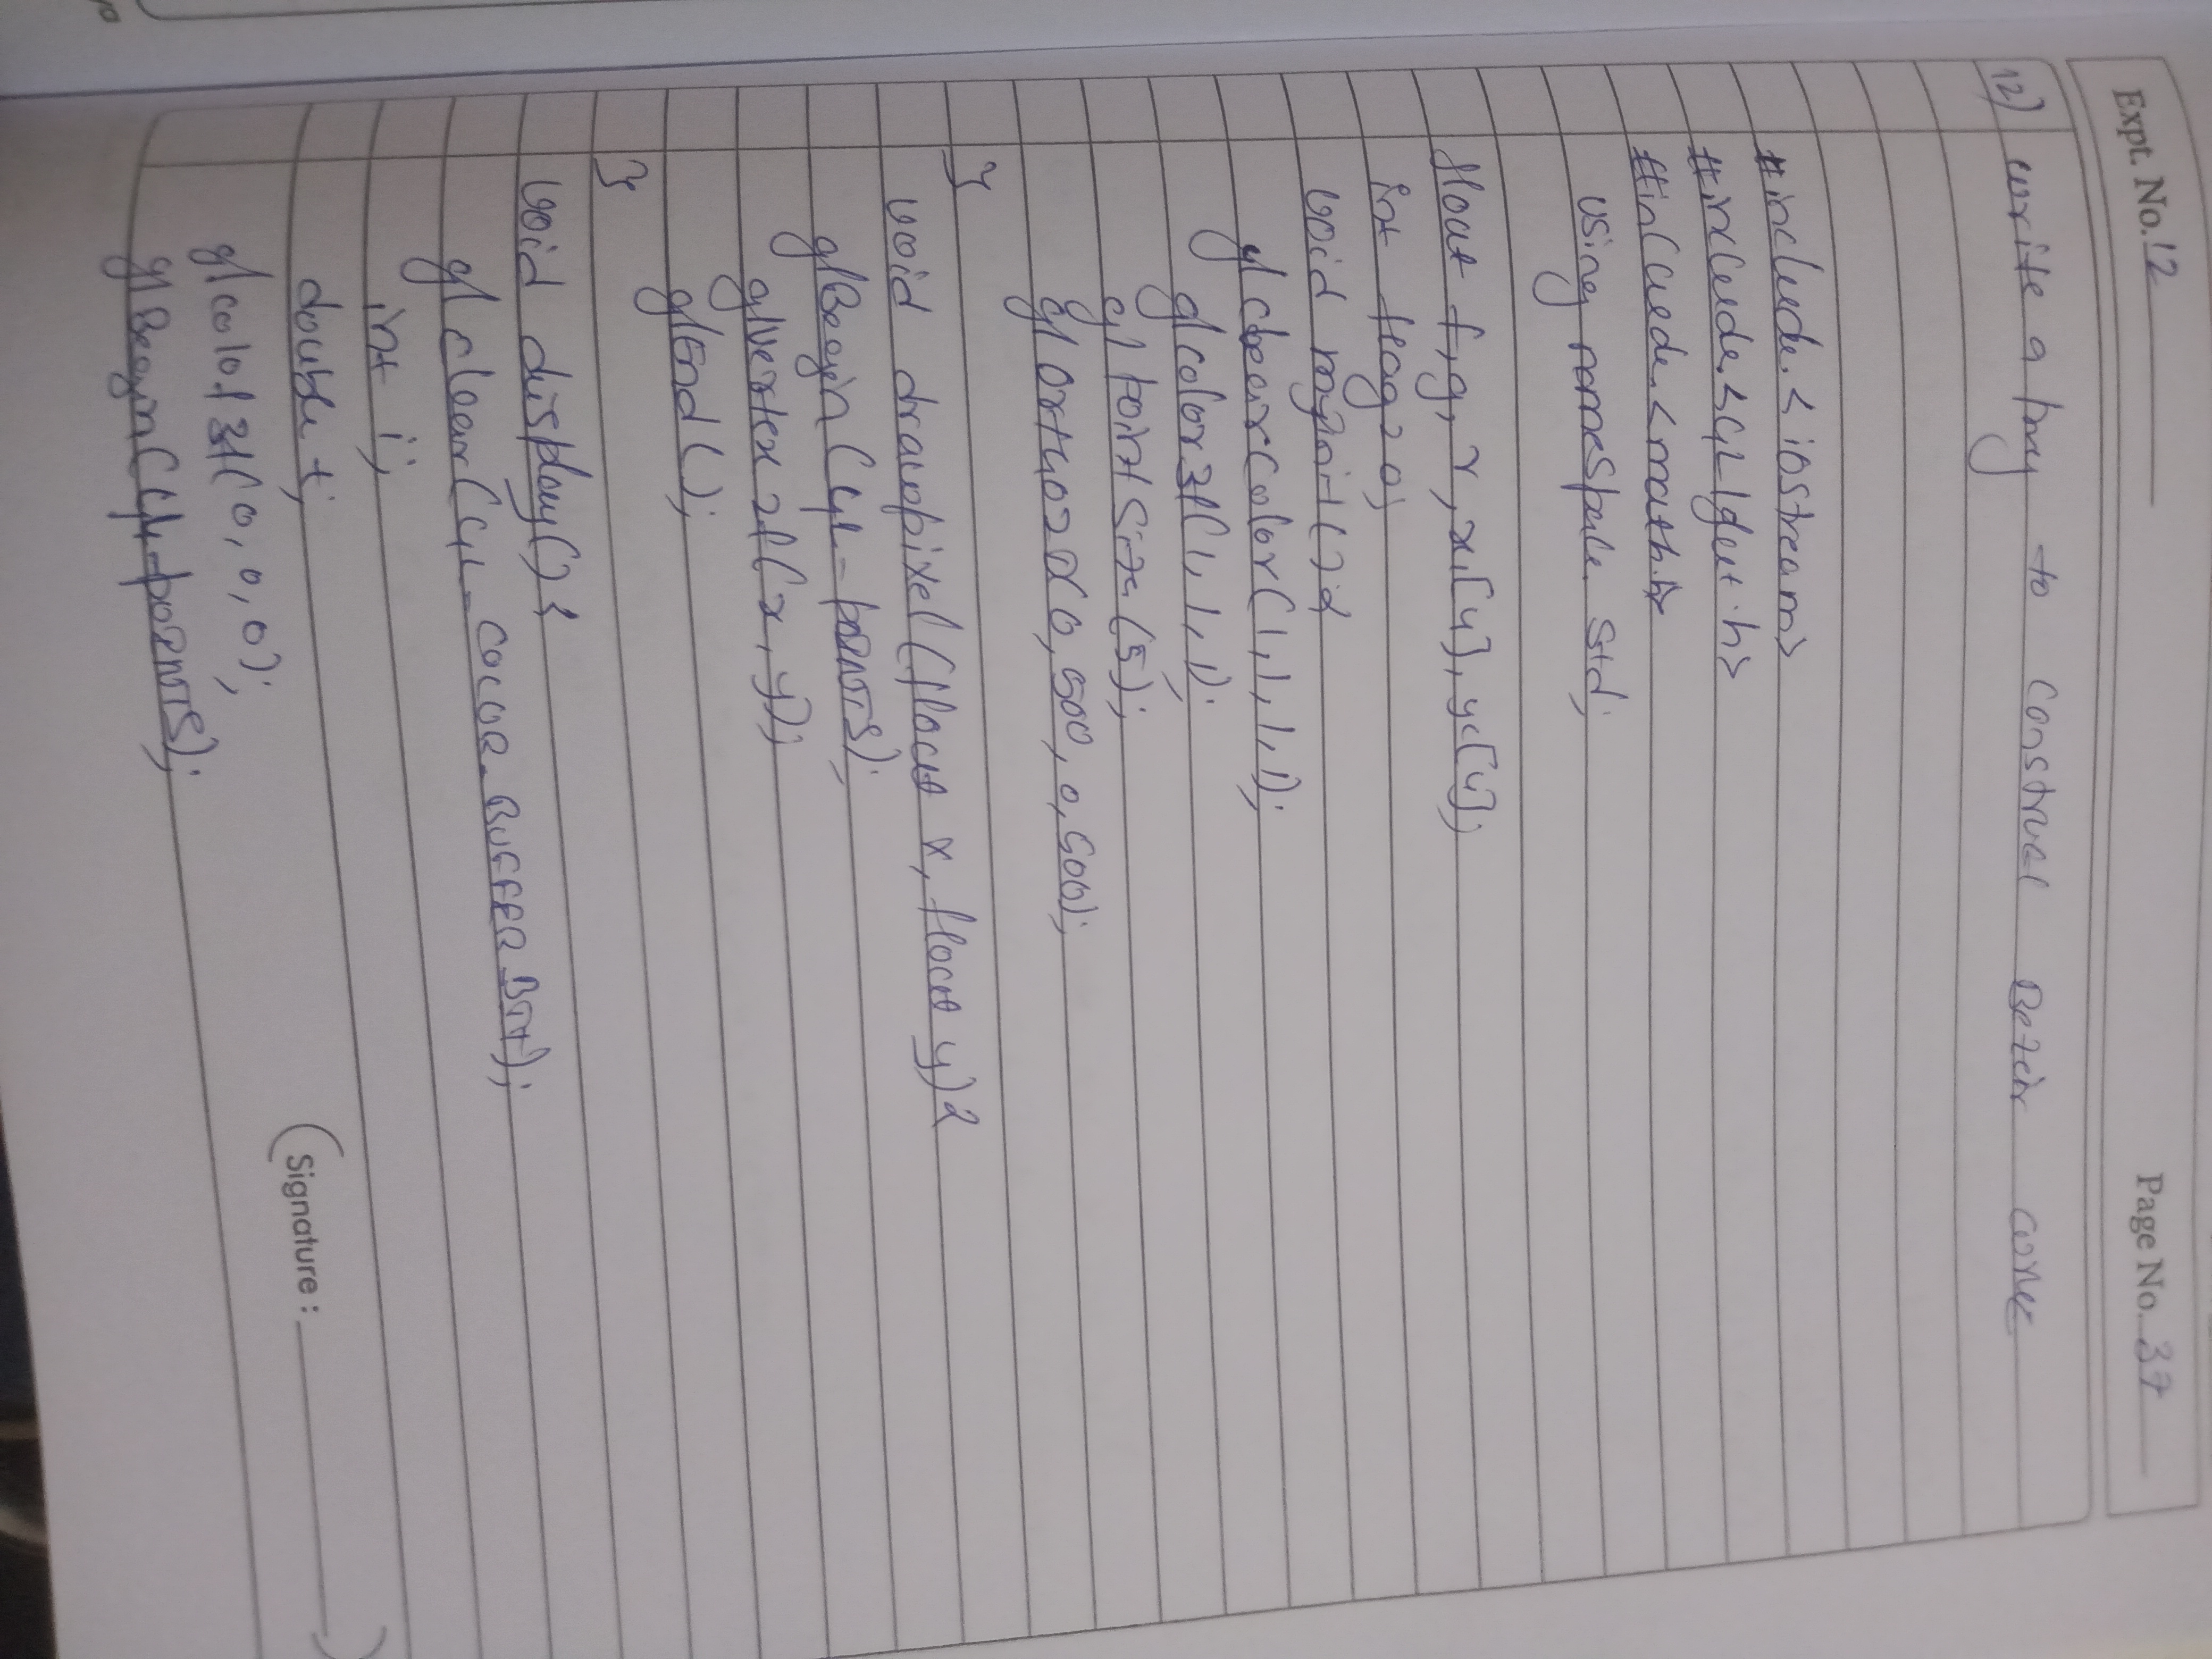 Expt. No. 12
Page No. 37
12) write a prog to construct Bezir curve
#include<iostream>
#include<GL/glut.h>
#include<math.h>
using namespace std;
float f,g,r,x,[4],yc[4];
int flag=0;
void myinit(){
glclearcolor(1,1,1,1);
glcolor3f(1,1,1);
glpointsize(5);
glortho2D(0,500,0,500);
}
void drawpixel(float x, float y){
glBegin(GL-POINTS);
glvertex2f(x,y);
glEnd();
}
void display(){
glclear(GL_COLOR_BUFFER_BIT);
int i;
double t;
glcolor3f(0,0,0);
glBegin(GL-POINTS);
(Signature : )